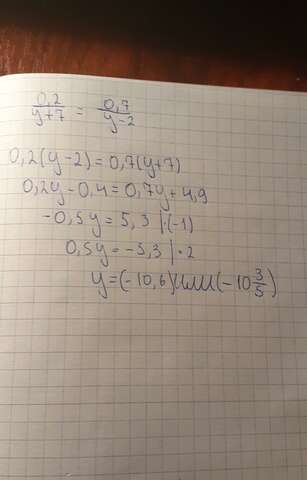 0,2/(y+7) = 0,7/(y-2)
0,2(y-2)=0,7(y+7)
0,2y-0,4=0,7y+4,9
-0,5y=5,3 |·(-1)
0,5y=-5,3 |·2
y=(-10,6) или (-10 3/5)